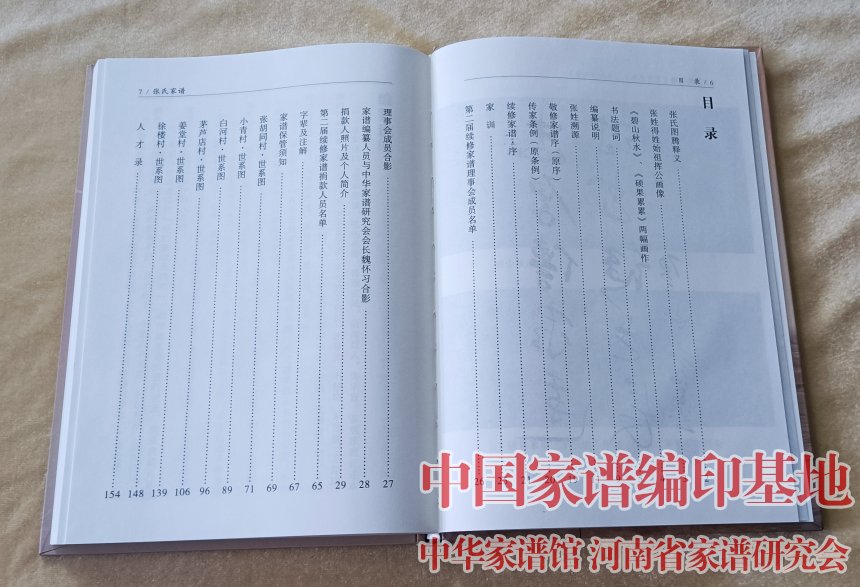 目　录 / 6
目　录
张氏图腾释义
张姓得姓始祖挥公画像
《碧山秋水》、《硕果累累》两幅画作
书法题词
编纂说明
张姓溯源
敬修家谱序（原序）
传家条例（原条例）
续修家谱序
家　训 26
第二届续修家谱理事会成员名单
7 / 张氏家谱
理事会成员合影 27
家谱编纂人员与中华家谱研究会会长魏怀习合影 28
捐款人照片及个人简介 29
第二届续修家谱捐款人员名单 65
字辈及注解 67
家谱保管须知 69
张胡同村·世系图 71
小青村·世系图 89
白河村·世系图 96
茅芦店村·世系图 106
姜堂村·世系图 139
徐楼村·世系图 148
人　才　录 154
中国家谱编印基地
中华家谱馆 河南省家谱研究会